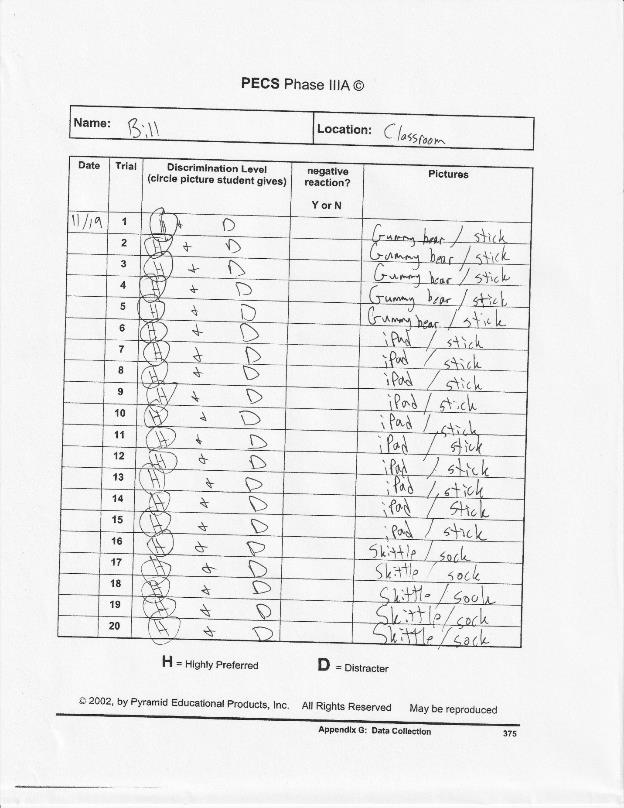 PECS Phase IIIA ©
Name: Bill Location: Classroom
Date Trial Discrimination Level (circle picture student gives) negative reaction? Y or N Pictures
11/19 1 H + D Gummy bear / stick
2 H + D Gummy bear / stick
3 H + D Gummy bear / stick
4 H + D Gummy bear / stick
5 H + D Gummy bear / stick
6 H + D iPad / stick
7 H + D iPad / stick
8 H + D iPad / stick
9 H + D iPad / stick
10 H + D iPad / stick
11 H + D iPad / stick
12 H + D iPad / stick
13 H + D iPad / stick
14 H + D iPad / stick
15 H + D iPad / stick
16 H + D Skittle / sock
17 H + D Skittle / sock
18 H + D Skittle / sock
19 H + D Skittle / sock
20 H + D Skittle / sock
H = Highly Preferred D = Distracter
© 2002, by Pyramid Educational Products, Inc. All Rights Reserved May be reproduced
Appendix G: Data Collection 375